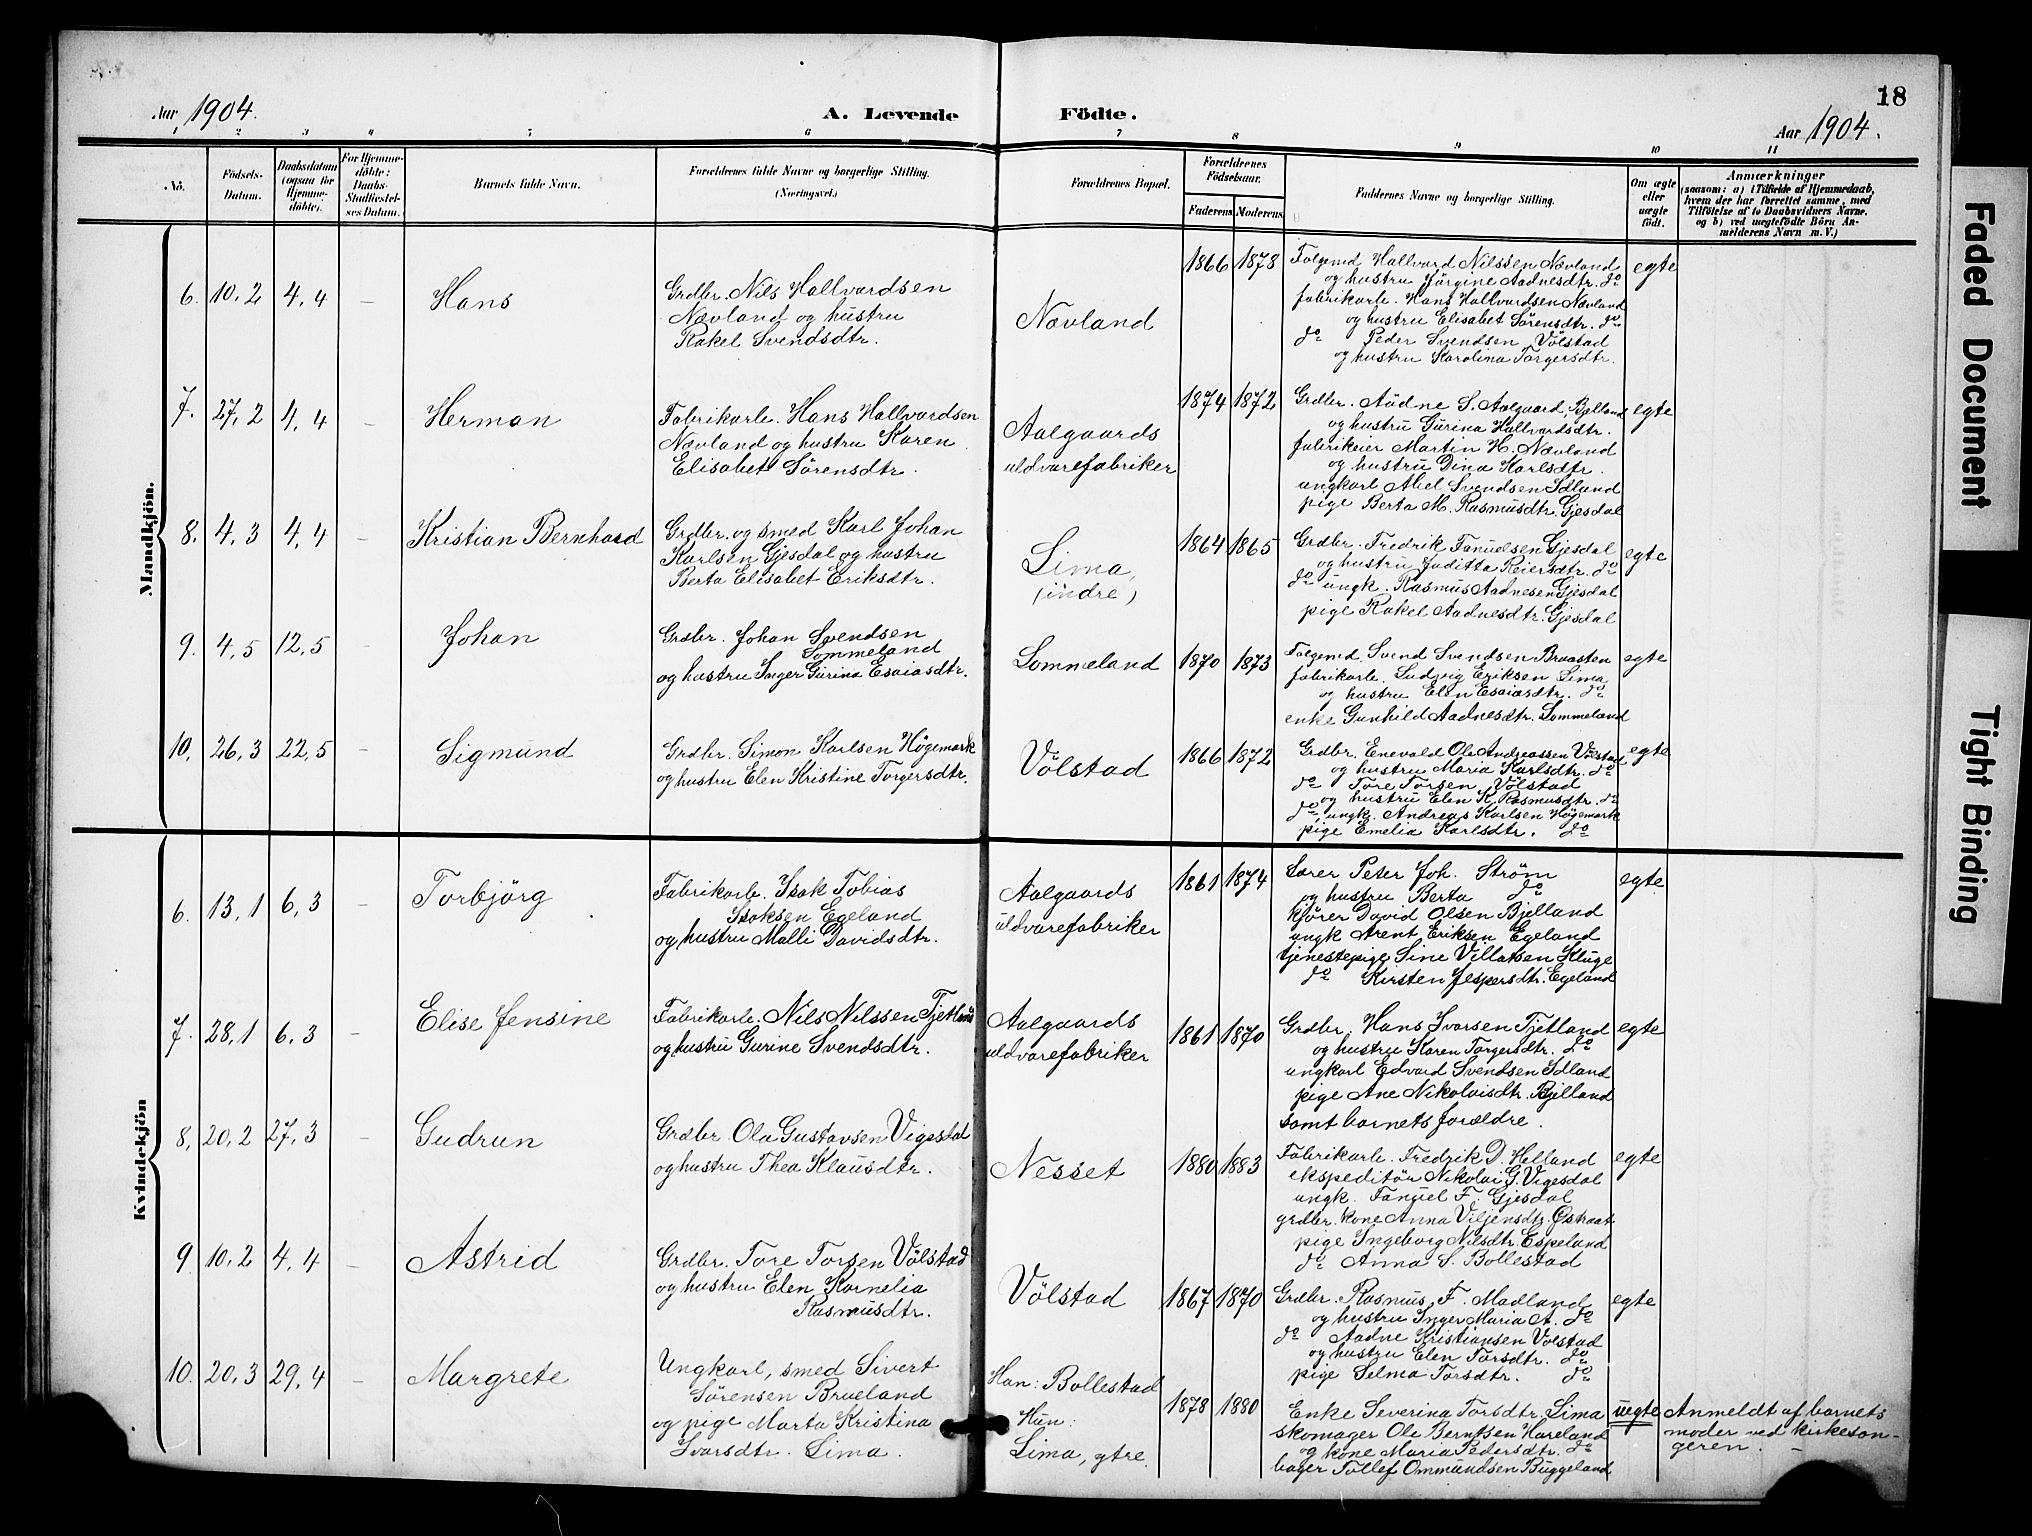 Aar 1904.
A. Levende
Födte.
18
Aar 1904.
1 2 3 4 5 6 7 8 9 10 11
No.
Födsels-
Datum.
Daabsdatum
(ogsaa for
Hjemme-
döbte).
For Hjemme-
döbte:
Daabs-
Stadfæstel-
ses Datum.
Barnets fulde Navn.
Forældrenes fulde Navne og borgerlige Stilling.
(Næringsvei.)
Forældrenes Bopæl.
Forældrenes
Födselsaar.
Faderens Moderens
Faddernes Navne og borgerlige Stilling.
Om ægte
eller
uægte
födt.
Anmærkninger
(saasom: a) i Tilfælde af Hjemmedaab,
hvem der har forrettet samme, med
Tilföielse af to Daabsvidners Navne,
og b) ved uegtefödte Börn An-
melderens Navn m. V.)
Mandkjön.
6. 10,2 4,4 —
Hans
Grdbr. Nils Hallvardsen
Nævland og hustru
Rakel Svendsdtr.
Nævland
1866 1878
Folgemd Hallvard Nilssen Nævland
og hustru Jörgine Aadnesdtr. do
fabrikarb. Hans Hallvardsen Nævland
og hustru Elisabet Sörensdtr. do
do Peder Svendsen Völstad
og hustru Karolina Torgersdtr.
egte
7. 27,2 4,4 —
Herman
Fabrikarb. Hans Hallvardsen
Nævland og hustru Karen
Elisabet Sörensdtr.
Aalgaards
uldvarefabriker
1874 1872
Grdbr. Aadne S. Aalgaard, Bjelland
og hustru Gurina Hallvardsdtr.
fabrikeier Martin H. Nævland
og hustru Dina Karlsdtr.
ungkarl Abel Svendsen Idland
pige Berta M. Rasmusdtr. Gjesdal
egte
8. 4,3 4,4 —
Kristian Bernhard
Grdbr. og smed Karl Johan
Karlsen Gjesdal og hustru
Berta Elisabet Eriksdtr.
Lima,
(indre)
1864 1865
Grdbr. Fredrik Tanuelsen Gjesdal
og hustru Juditta Reiersdtr. do
do ungk. Rasmus Aadnesen Gjesdal
pige Rakel Aadnesdtr. Gjesdal
egte
9. 4,5 12,5 —
Johan
Grdbr. Johan Svendsen
Sommeland
og hustru Inger Gurina Esaiasdtr.
Sommeland
1870 1873
Folgemd. Svend Svendsen Braasten
fabrikarb. Ludvig Eriksen Lima
og hustru Elen Esaiasdtr. do
enke Gunhild Aadnesdtr. Sommeland
egte
10. 26,3 22,5 —
Sigmund
Grdbr. Simon Karlsen Högemark
og hustru Elen Kristine Torgersdtr.
Völstad
1866 1872
Grdbr. Enevald Ole Andreassen Völstad
og hustru Maria Karlsdtr. do
do Tore Torsen Völstad
og hustru Elen K. Rasmusdtr. do
do, ungk. Andreas Karlsen Högemark
pige Emelia Karlsdtr. do
egte
Kvindekjön
6. 13,1 6,3 —
Torbjörg
Fabrikarb. Isak Tobias
Isaksen Egeland
og hustru Malli Davidsdtr.
Aalgaards
uldvarefabriker
1861 1874
Lærer Peter Joh. Ström
og hustru Berta do
kjörer David Olsen Bjelland
ungk Arent Eriksen Egeland
tjenestepige Sine Villatsen Kluge
do Kirsten Jespersdtr. Egeland
egte
7. 28,1 6,3 —
Elise Jensine
Fabrikarb. Nils Nilssen Tjetland
og hustru Gurine Svendsdtr.
Aalgaards
uldvarefabriker
1861 1870
Grdbr. Hans Ivarsen Tjetland
og hustru Karen Torgersdtr. do
ungkarl Edvard Svendsen Idland
pige Ane Nikolaisdtr. Bjelland
samt barnets forældre.
egte
8, 20,2 27,3 —
Gudrun
Grdbr. Ola Gustavsen Vigesdal
og hustru Thea Klausdtr.
Nesset
1880 1883
Fabrikarb. Fredrik D. Helland
ekspeditör Nikolai G. Vigesdal
ungk. Tanuel F. Gjesdal
grdbr. kone Anna Viljensdtr. Østraat
pige Ingeborg Nilsdtr. Espeland
do Anna S. Bollestad
egte
9 10,2 4,4 —
Astrid
Grdbr. Tore Torsen Völstad
og hustru Elen Kornelia
Rasmusdtr.
Völstad
1867 1870
Grdbr. Rasmus F. Madland
og hustru Inger Maria A. do
do Aadne Kristiansen Volstad
og hustru Elen Torsdtr. do
pige Selma Torsdtr. do
egte
10. 20,3 29,4 —
Margrete
Ungkarl, smed Sivert
Sörensen Brueland
og pige Marta Kristina
Ivarsdtr. Lima.
Han: Bollestad
Hun:
Lima, ytre.
1878 1880
Enke Severina Torsdtr. Lima
skomager Ole Berntsen Hareland
og kone Maria Pedersdtr. do
bager Tollef Ommundsen Buggeland
uegte
Anmeldt af barnets
moder ved kirkesan-
geren. —
Faded Document
Tight Binding